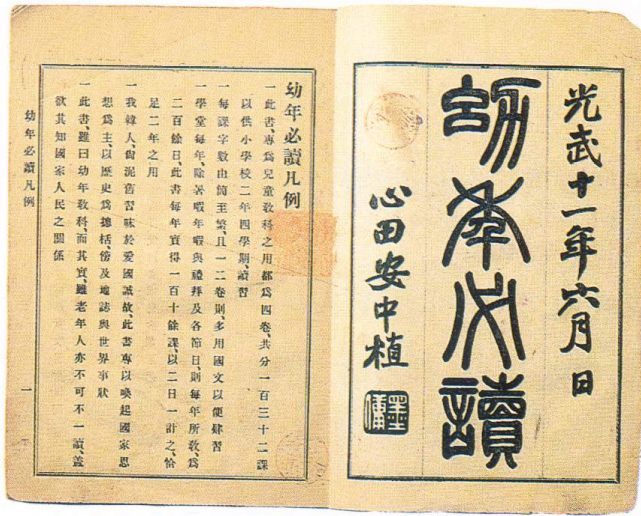 光武十一年六月日
幼年必讀
心田安中植
幼年必讀凡例
一此書、專爲兒童敎科之用都爲四卷、共分一百三十二課
以供小學校二年四學期、讀習
一每課字數由簡至繁、且一二卷則、多用國文以便肄習
一學堂每年、除暑暇年暇與禮拜及各節日、則每年所敎、爲
二百餘日、此書每年實得一百十餘課、以二日一計之、恰
足二年之用
一我韓人、尙泥舊習昧於愛國誠故、此書專以喚起國家思
想爲主、以歷史爲總括、傍及地誌與世界事狀
一此書、雖曰幼年敎科、而其實、雖老年人亦不可不一讀、蓋
欲其知國家人民之關係
幼年必讀凡例
一